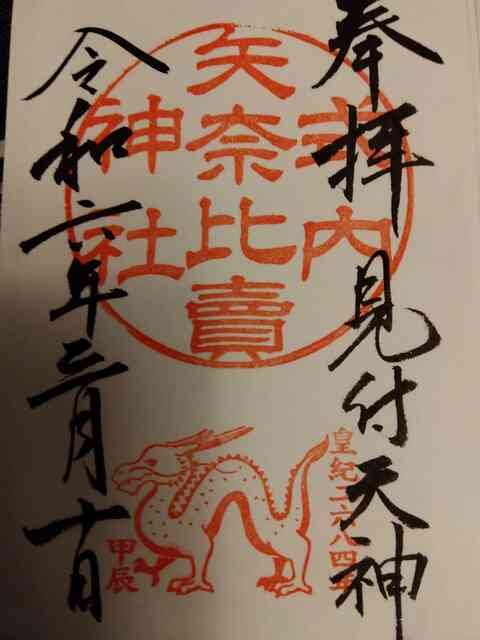 奉拝 見付天神
式内
矢奈比賣
神社
令和六年三月十日
皇紀二六八四年
甲辰